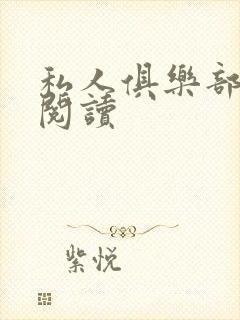 私人俱樂部
閱讀
紫悦